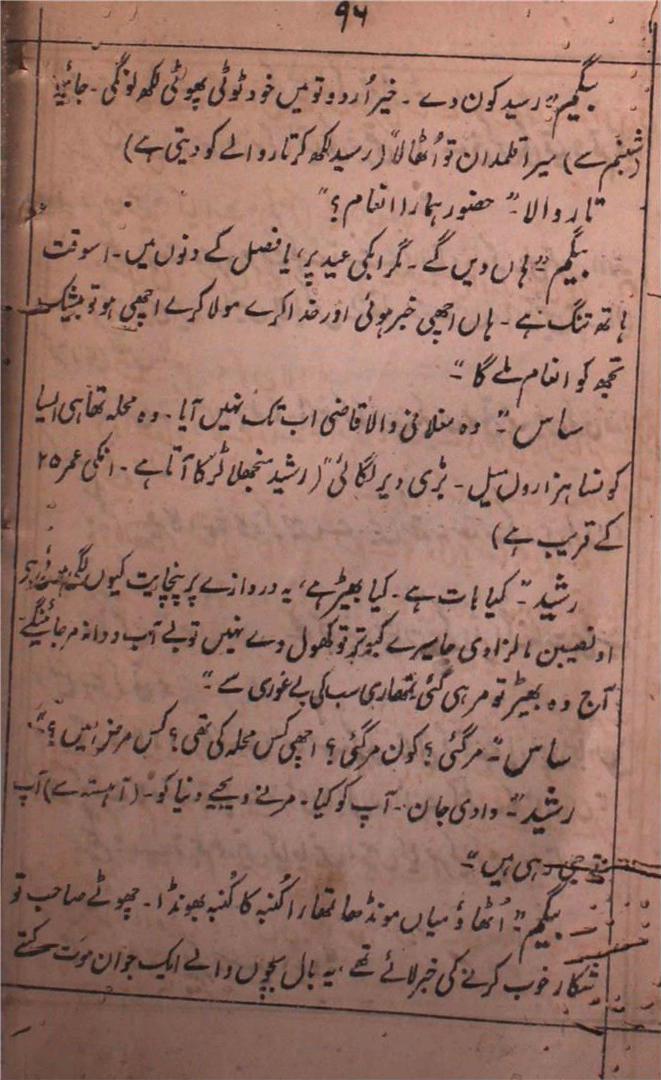 ۹۶
بیگم "رسید کون دے ۔ خیر اُردو تو میں خود ٹوٹی پھوٹی لکھ لونگی ۔ جائیے
(شبنم سے) میرا قلمدان تو اُٹھالا" (رسید لکھ کر تار والے کو دیتی ہے)
تار والا ۔" حضور ہمارا انعام؟"
بیگم ۔" ہاں دیں گے ۔ مگر ابکی عید پر، یا فصل کے دنوں میں ۔ اسوقت
ہاتھ تنگ ہے ۔ ہاں اچھی خبر ہوئی اور خدا کرے مولا کرے اچھی ہو تو بیشک
تجھ کو انعام ملے گا "۔
ساس ۔" وہ مغلانی والا قاضی اب تک نہیں آیا ۔ وہ محلہ تھا ہی ایسا
کونسا ہزاروں میل ۔ بڑی دیر لگائی" (رشید منجھلا لڑکا آتا ہے ۔ انکی عمر ۲۵
کے قریب ہے)
رشید ۔" کیا بات ہے ۔ کیا بھیڑ ہے، یہ دروازے پر پنچایت کیوں لگی
او نصیبن مالزادی جا میرے کبوتر تو کھول دے نہیں تو بے آب و دانہ مر جائینگے ۔
آج وہ بھیڑ تو مر ہی گئی تمھاری سب کی بے غوری سے "۔
ساس ۔" مر گئی؟ کون مر گئی؟ اچھی کس محلہ کی تھی؟ کس مرض میں؟"۔
رشید ۔" دادی جان ۔ آپ کو کیا ۔ مرنے دیجیے دنیا کو ۔ (آہستہ سے) آپ
جی رہی ہیں "۔
بیگم ۔" اُٹھاؤ میاں مونڈھا تمھارا کُنبہ کا کُنبہ بھونڈا ۔ چھوٹے صاحب تو
شکار خوب کرنے کی خبر لائے تھے، یہ بال بچوں والے ایک جوان موت